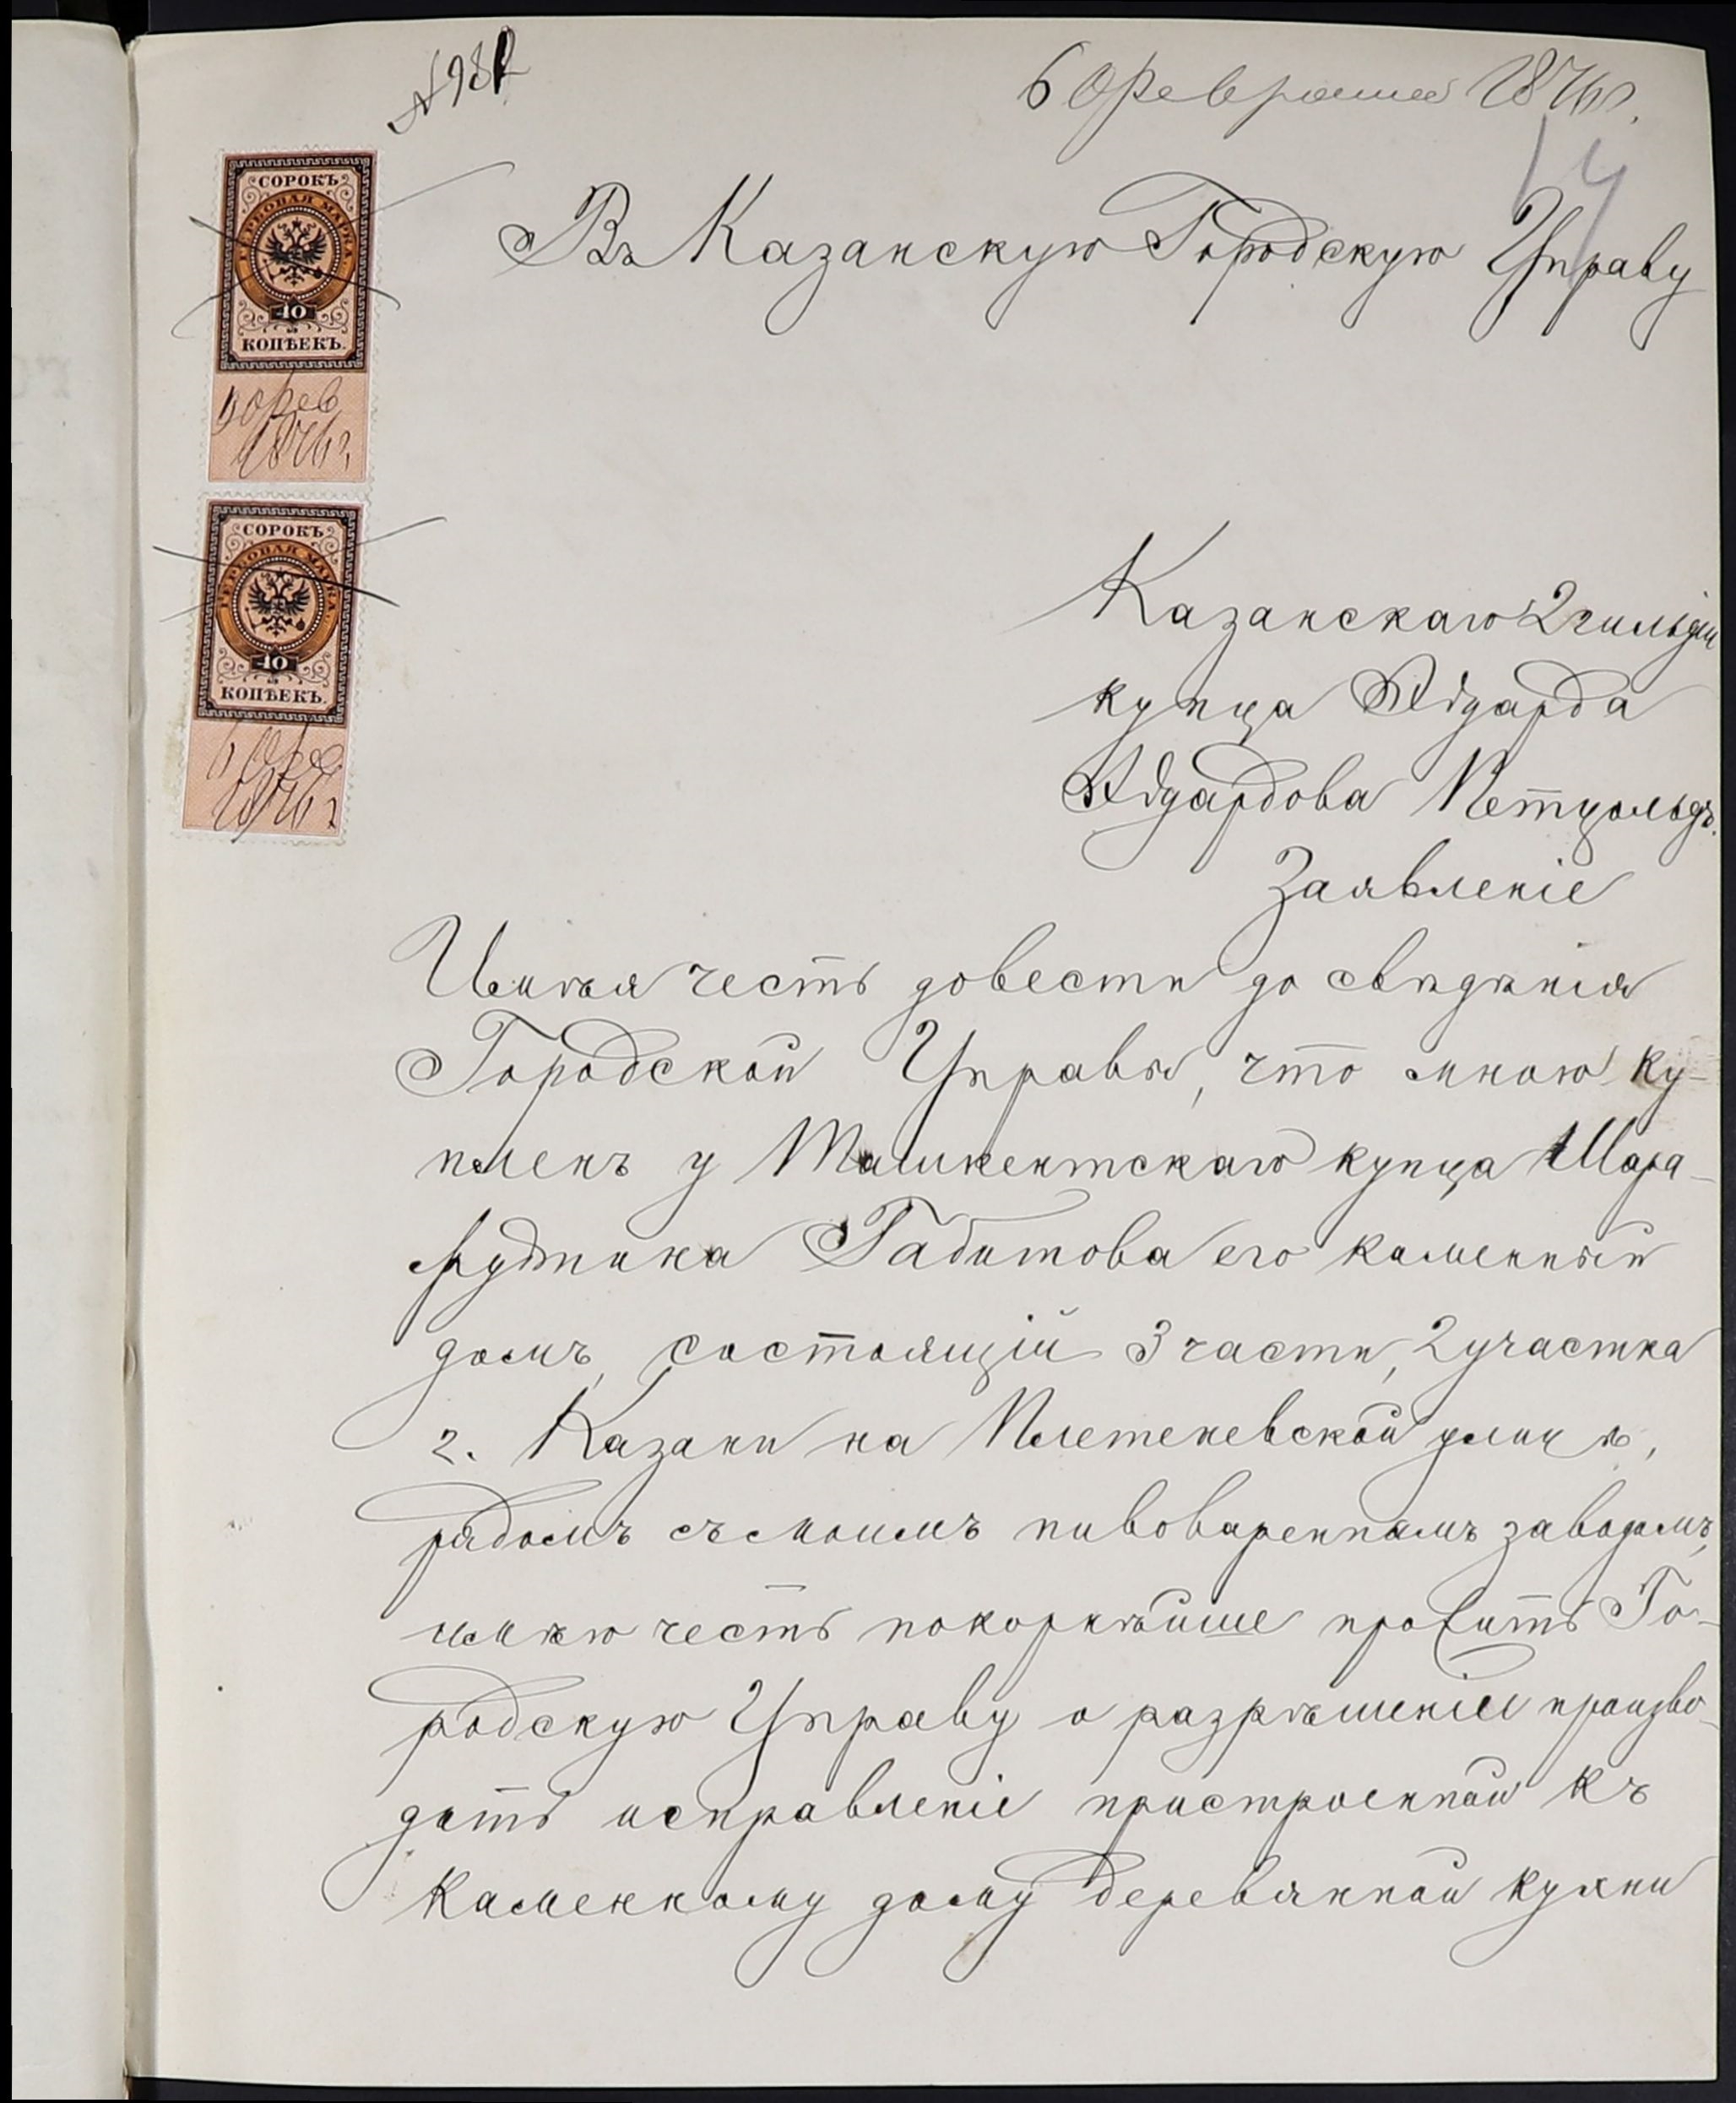 № 982
6 Февраля 1876 г.
14
Въ Казанскую Городскую Управу
СОРОКЪ
ГЕРБОВАЯ МАРКА
40
КОПѢЕКЪ.
6 Фев
1876 г.
СОРОКЪ
ГЕРБОВАЯ МАРКА
40
КОПѢЕКЪ.
6 Фев
1876 г
Казанскаго 2 гильдіи
купца Эдуарда
Эдуардова Петцольдъ.
Заявленіе
Имѣя честь довести до свѣдѣнія
Городской Управы, что мною ку-
пленъ у Ташкентскаго купца Шара-
футдина Габитова его каменный
домъ, состоящій 3 части, 2 участка
г. Казани на Плетеневской улицѣ,
рядомъ съ моимъ пивовареннымъ заводомъ,
имѣю честь покорнѣйше просить Го-
родскую Управу о разрѣшеніи произво-
дить исправленіе пристроенной къ
каменному дому деревянной кухни